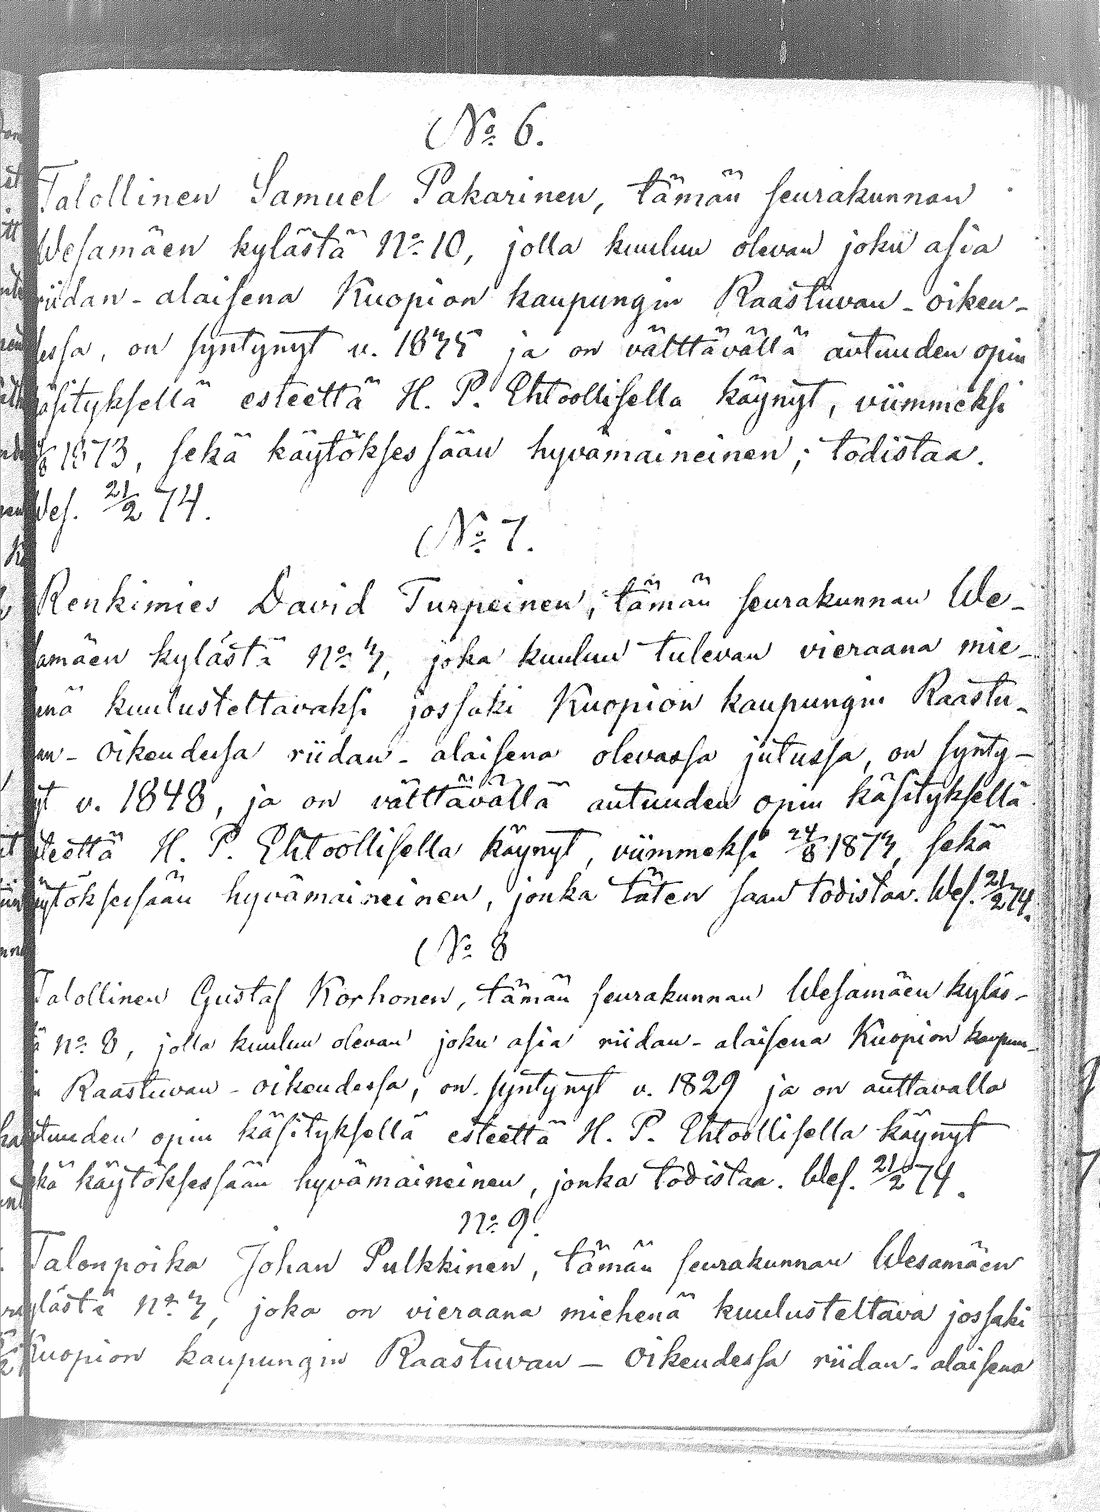 No 6.
Talollinen Samuel Pakarinen, tämän seurakunnan
Wesamäen kylästä No 10, jolla kuuluu olevan joku asia
riidan-alaisena Kuopion kaupungin Raastuvan-oiken-
dessa, on syntynyt v. 1835 ja on välttävällä autuuden opin
käsityksellä esteettä H. P. Ehtoollisella käynyt, viimmeksi
1873, sekä käytöksessään hyvämaineinen; todistaa.
Wes. 21/2 74.
No 7.
Renkimies David Turpeinen, tämän seurakunnan We-
samäen kylästä No 3, joka kuuluu tulevan vieraana mie-
henä kuulusteltavaksi jossaki Kuopion kaupungin Raastu-
van-oikeudessa riidan-alaisena olevassa jutussa, on synty-
nyt v. 1848, ja on välttävällä autuuden opin käsityksellä
esteettä H. P. Ehtoollisella käynyt, viimmeksi 24/8 1873, sekä
käytöksessään hyvämaineinen, jonka täten saan todistaa. Wes. 21/2 74.
No 8
Talollinen Gustaf Korhonen, tämän seurakunnan Wesamäen kyläs-
tä No 8, jolla kuuluu olevan joku asia riidan-alaisena Kuopion kaupun-
gin Raastuvan-oikeudessa, on syntynyt v. 1829 ja on auttavalla
autuuden opin käsityksellä esteettä H. P. Ehtoollisella käynyt
sekä käytöksessään hyvämaineinen, jonka todistaa. Wes. 21/2 74.
No 9.
Talonpoika Johan Pulkkinen, tämän seurakunnan Wesamäen
kylästä No 3, joka on vieraana miehenä kuulusteltava jossaki
Kuopion kaupungin Raastuvan-oikeudessa riidan-alaisena